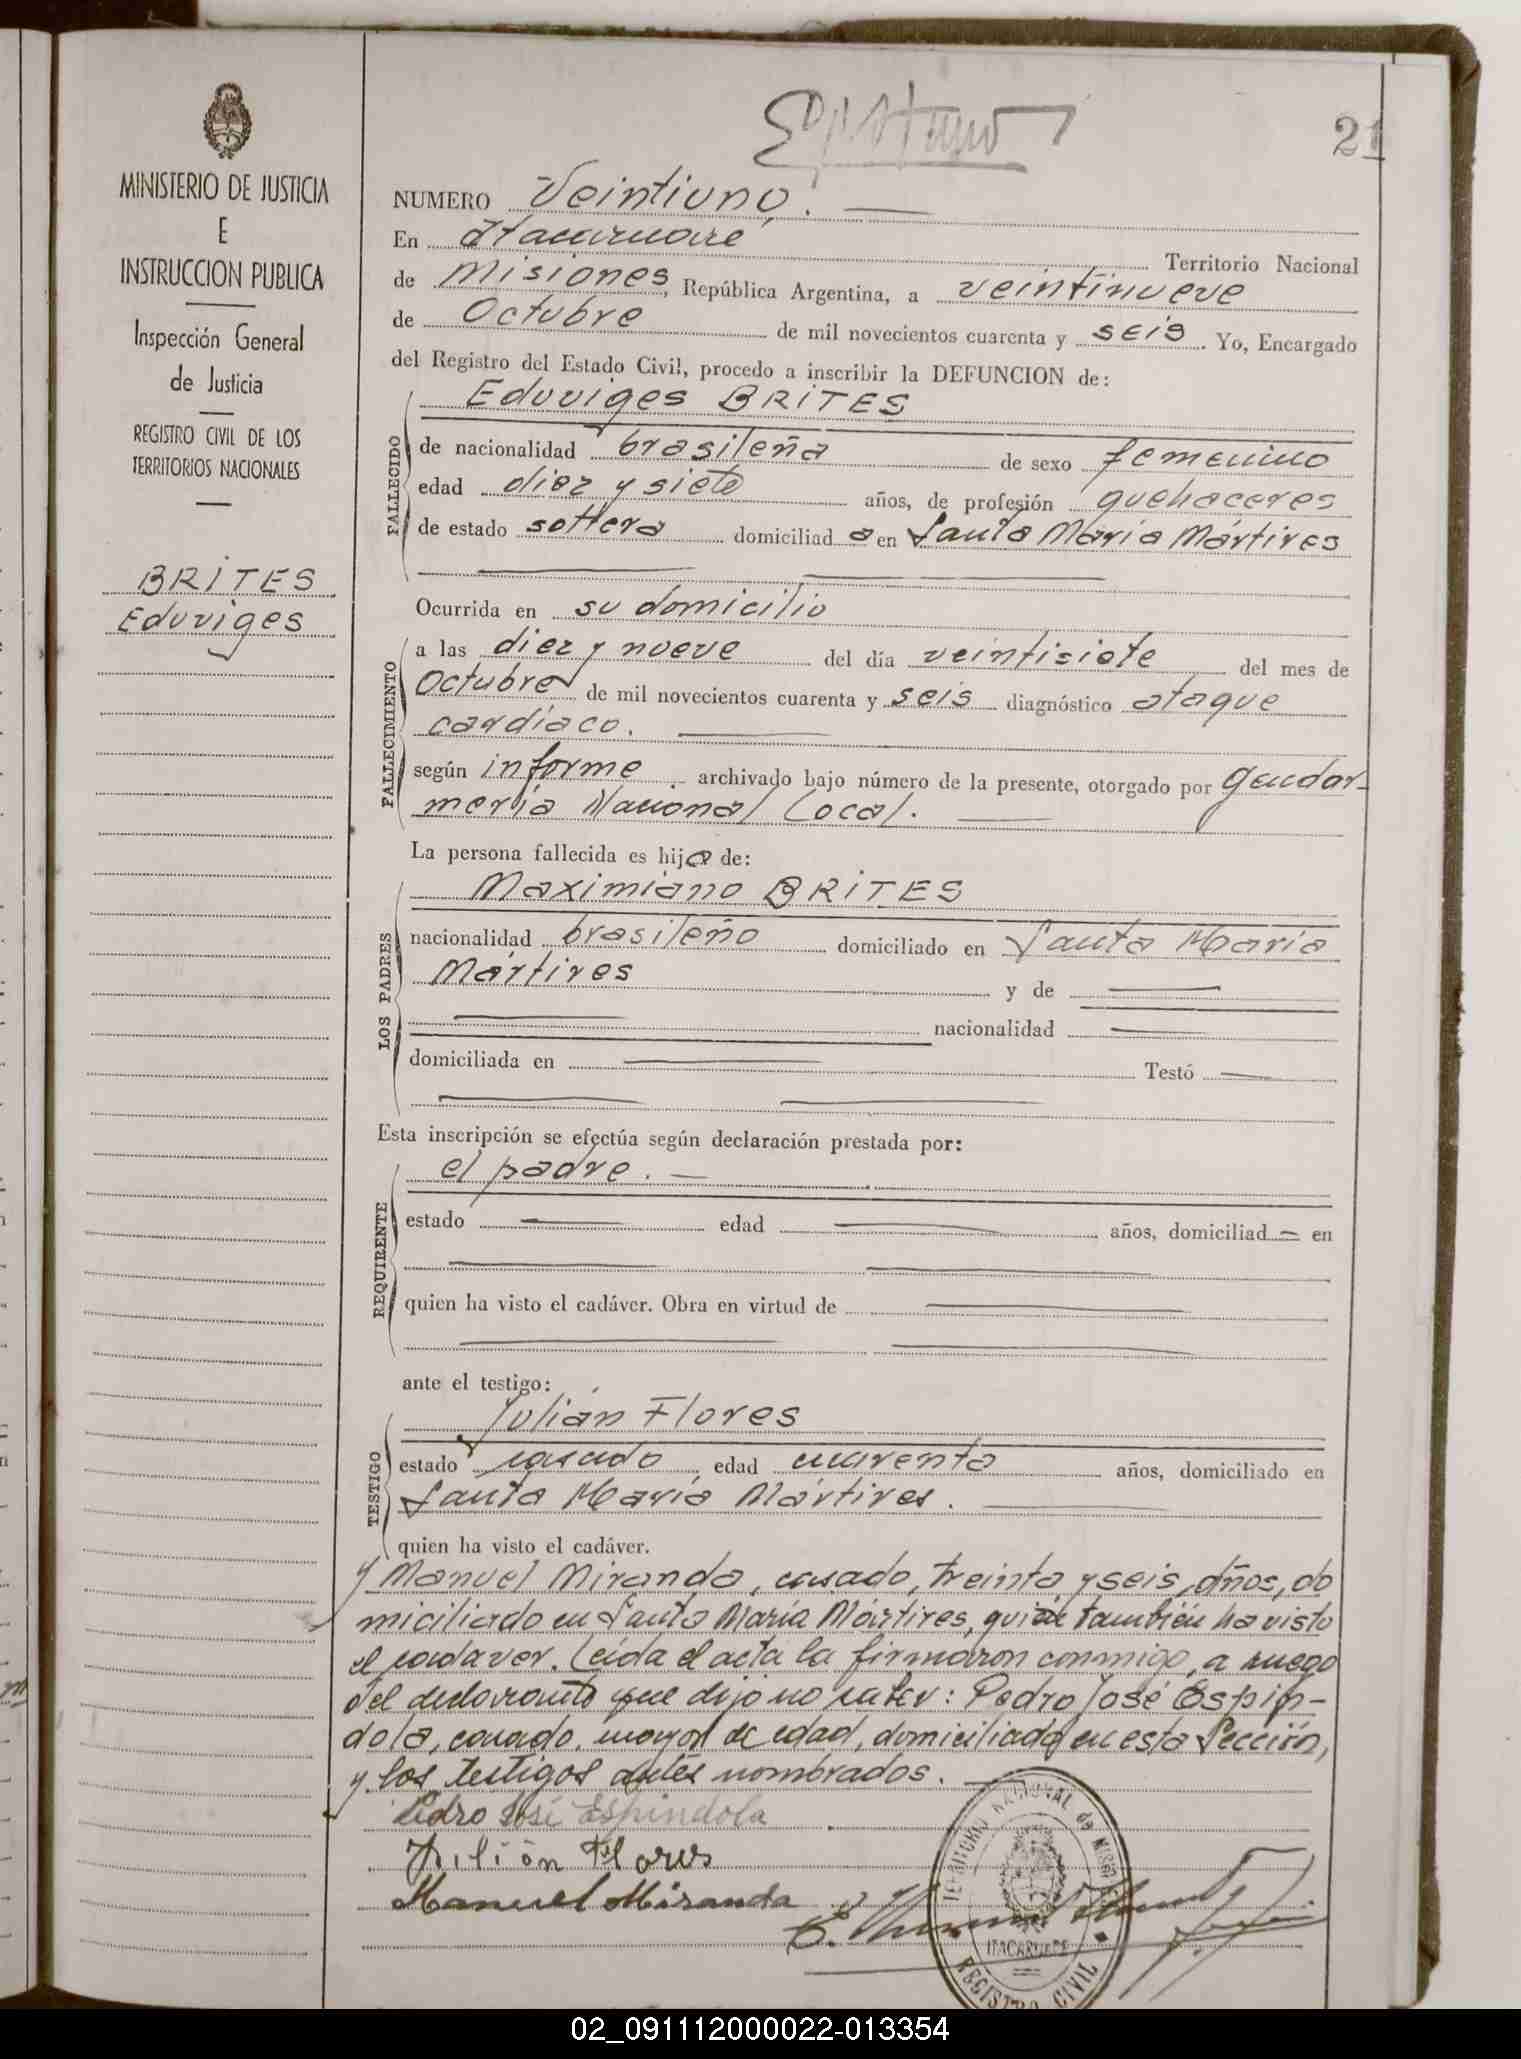 21
MINISTERIO DE JUSTICIA
E
INSTRUCCION PUBLICA
Inspección General
de Justicia
REGISTRO CIVIL DE LOS
TERRITORIOS NACIONALES
BRITES
Eduviges
NUMERO Veintiuno.
En Itacaruare Territorio Nacional
de Misiones, República Argentina, a veintinueve
de Octubre de mil novecientos cuarenta y seis. Yo, Encargado
del Registro del Estado Civil, procedo a inscribir la DEFUNCION de:
FALLECIDO
Eduviges BRITES
de nacionalidad brasileña de sexo femenino
edad diez y siete años, de profesión quehaceres
de estado soltera domiciliada en Santa María Mártires
Ocurrida en su domicilio
FALLECIMIENTO
a las diez y nueve del día veintisiete del mes de
Octubre de mil novecientos cuarenta y seis diagnóstico ataque
cardíaco.
según informe archivado bajo número de la presente, otorgado por Gendar-
mería Nacional Local.
La persona fallecida es hija de:
LOS PADRES
Maximiano BRITES
nacionalidad brasileño domiciliado en Santa María
Mártires y de
nacionalidad
domiciliada en Testó
Esta inscripción se efectúa según declaración prestada por:
REQUIRENTE
el padre.
estado edad años, domiciliad en
quien ha visto el cadáver. Obra en virtud de
ante el testigo:
TESTIGO
Julián Flores
estado casado edad cuarenta años, domiciliado en
Santa María Mártires.
quien ha visto el cadáver.
y Manuel Miranda, casado, treinta y seis años, do
miciliado en Santa María Mártires, quien también ha visto
el cadaver. Leída el acta la firmaron conmigo, a ruego
del declarante que dijo no saber: Pedro José Espín-
dola, casado, mayor de edad, domiciliado en esta Sección,
y los testigos antes nombrados.
Pedro José Espindola
Julión Flores
Manuel Miranda
TERRITORIO NACIONAL de MISIONES
ITACARUARE
REGISTRO CIVIL
02_091112000022-013354